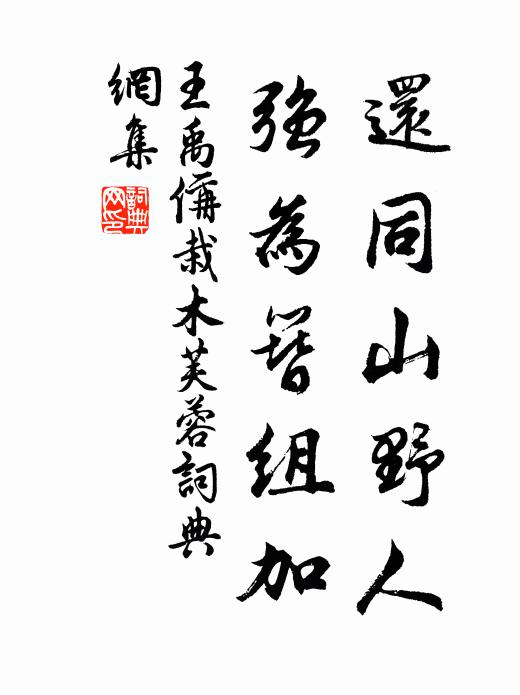 還同山野人
強為簪組加
王禹偁栽木芙蓉詞典
網集
詞典
网印